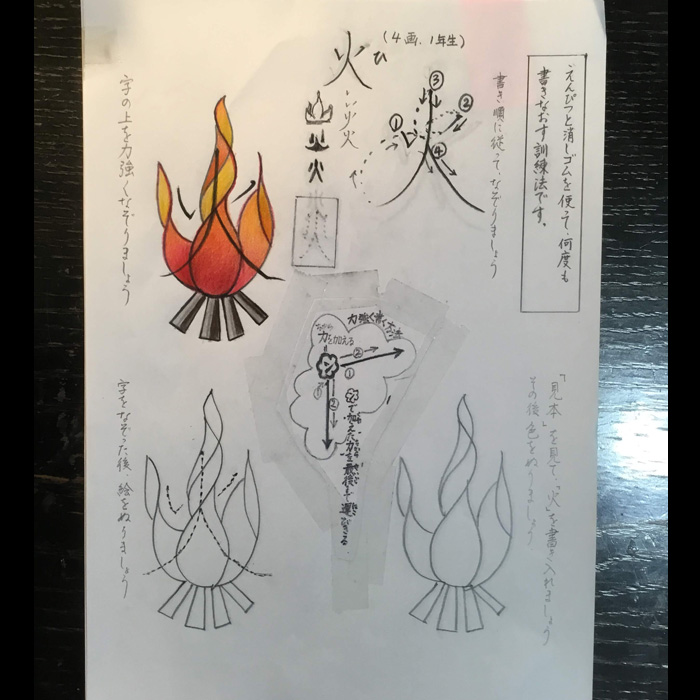 えんぴつと消しゴムを使って、何度も
書きなおす訓練法です。
火 ひ (4画、1年生)
① ② ③ ④
書き順に従って、なぞりましょう
字の上を力強くなぞりましょう
力強く書く方法
力を加える
① ②
① ②
で加えた力を最後まで運びきる
「見本」を見て、「火」を書き入れましょう
その後、色をぬりましょう
字をなぞった後、絵をぬりましょう